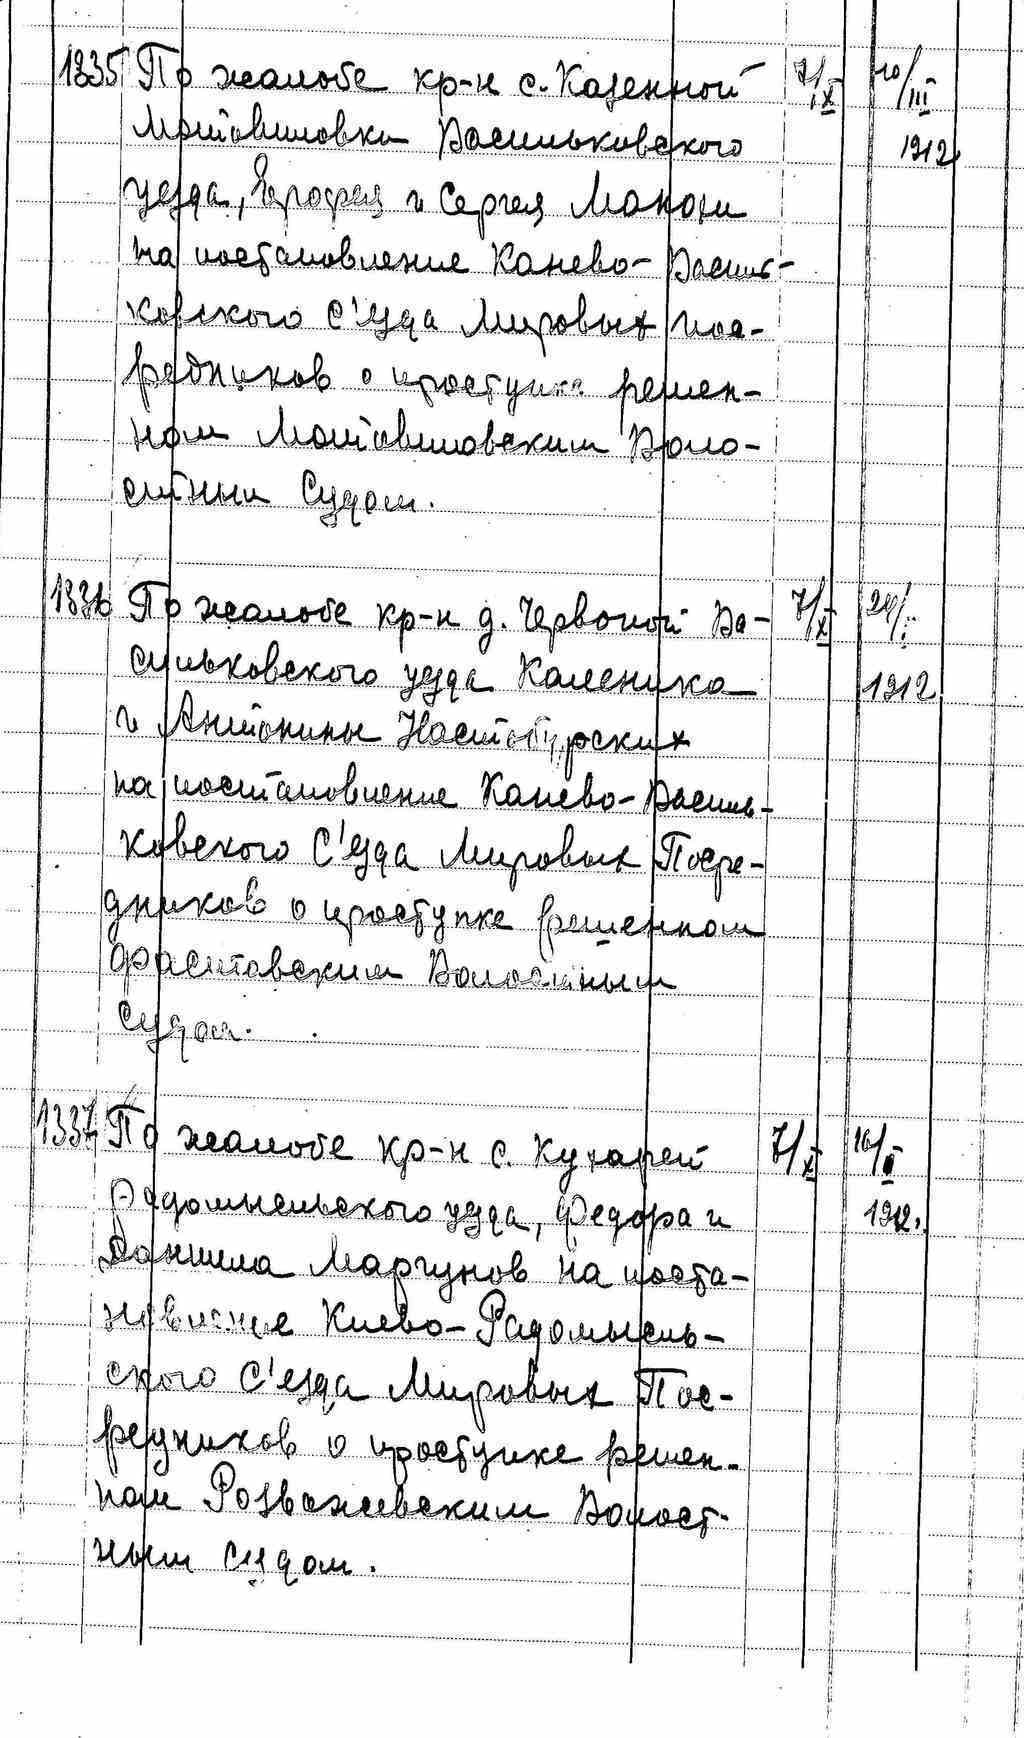 1335 По жалобе кр-н с. Казенной 7/IX 10/III
Мотовиловки Васильковского 1912
уезда, Ерофея и Сергея Мокози
на постановление Канево-Василь-
ковского С'езда Мировых Пос-
редников о проступке решен-
ном Мотовиловским Воло-
стным Судом.
1336 По жалобе кр-н д. Червоной Ва- 7/X 24/I
сильковского уезда Каленика 1912
и Антонины
на постановление Канево-Василь-
ковского С'езда Мировых Посре-
дников о проступке решенном
Фастовским Волостным
Судом.
1337 По жалобе кр-н с. Кухарей 7/X 16/II
Радомысльского уезда, Федора и 1912.
Даниила Моргунов на поста-
новление Киево-Радомысль-
ского С'езда Мировых Пос-
редников о проступке решен-
ном Розважевским Волост-
ным Судом.